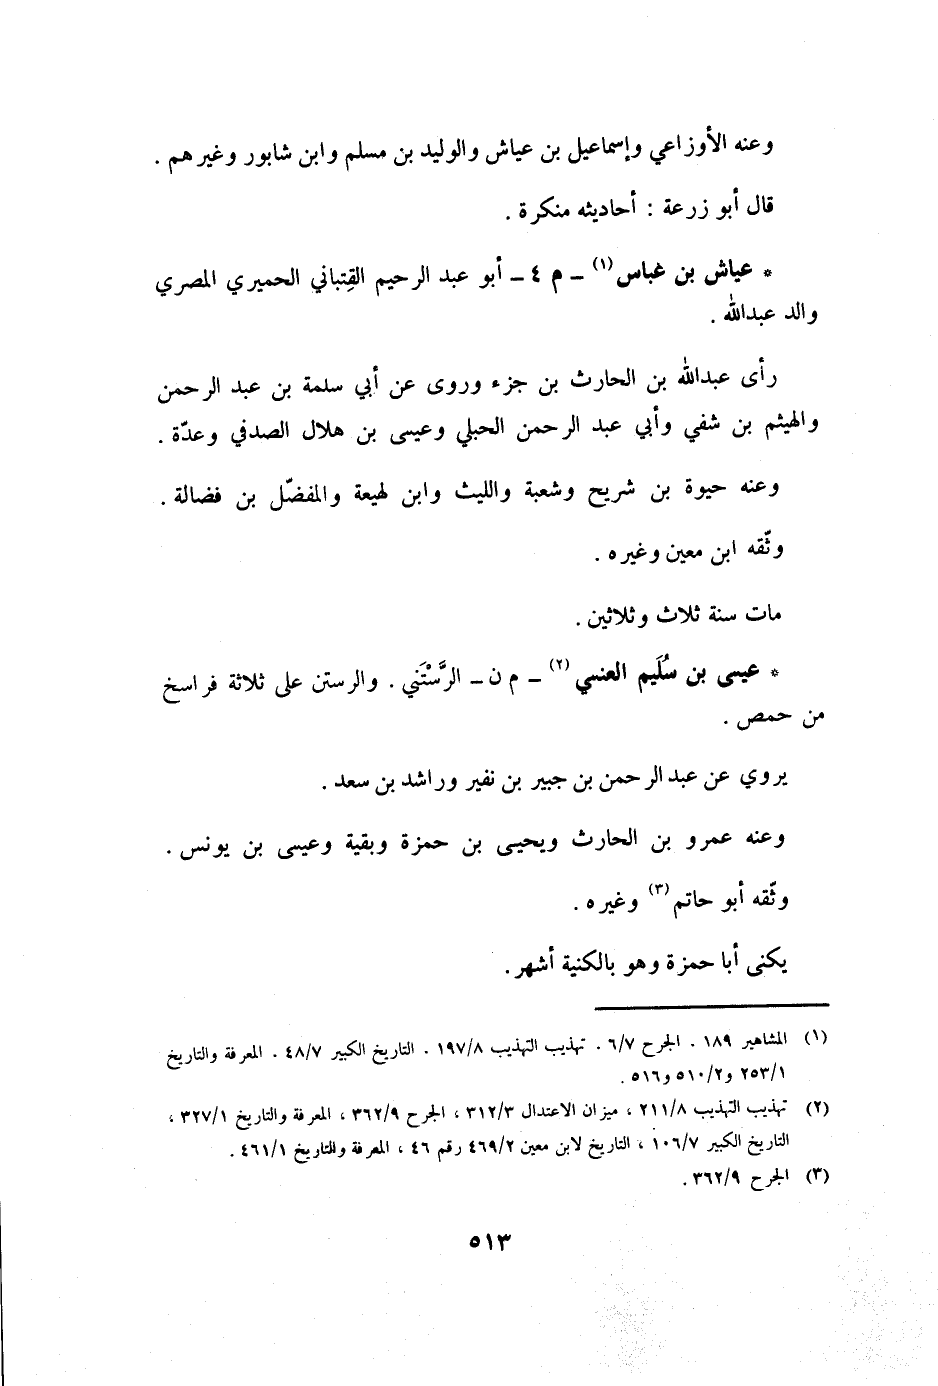 وعنه الأوزاعي وإسماعيل بن عياش والوليد بن مسلم وابن شابور وغيرهم .
قال أبو زرعة : أحاديثه منكرة .
* عياش بن غباس(١) ـ م ٤ ـ أبو عبد الرحيم القِتباني الحميري المصري
والد عبدالله .
رأى عبدالله بن الحارث بن جزء وروى عن أبي سلمة بن عبد الرحمن
والهيثم بن شفي وأبي عبد الرحمن الحبلي وعيسى بن هلال الصدفي وعدّة .
وعنه حيوة بن شريح وشعبة والليث وابن لهيعة والمفضّل بن فضالة .
وثّقه ابن معين وغيره .
مات سنة ثلاث وثلاثين .
* عيسى بن سُلَيم العنسي(٢) ـ م ن ـ الرَّسْتَني . والرستن على ثلاثة فراسخ
من حمص .
يروي عن عبد الرحمن بن جبير بن نفير وراشد بن سعد .
وعنه عمرو بن الحارث ويحيى بن حمزة وبقية وعيسى بن يونس .
وثّقه أبو حاتم(٣) وغيره .
يكنى أبا حمزة وهو بالكنية أشهر .
(١) المشاهير ١٨٩ . الجرح ٦/٧ . تهذيب التهذيب ١٩٧/٨ . التاريخ الكبير ٤٨/٧ . المعرفة والتاريخ
٢٥٣/١ و٥١٠/٢ و٥١٦ .
(٢) تهذيب التهذيب ٢١١/٨ ، ميزان الاعتدال ٣١٢/٣ ، الجرح ٣٦٢/٩ ، المعرفة والتاريخ ٣٢٧/١ ،
التاريخ الكبير ١٠٦/٧ ، التاريخ لابن معين ٤٦٩/٢ رقم ٤٦ ، المعرفة وللتاريخ ٤٦١/١ .
(٣) الجرح ٣٦٢/٩ .
٥١٣